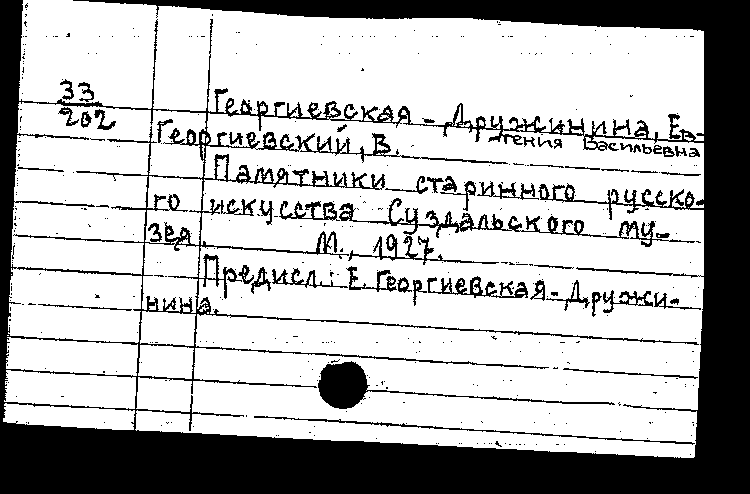 33
202
Георгиевская - Дружинина, Ев-
гения Васильевна
Георгиевский, В.
Памятники старинного русско-
го искусства Суздальского му-
зея. М., 1927.
Предисл.: Е. Георгиевская - Дружи-
нина.